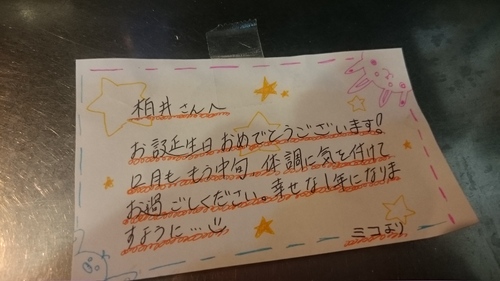 柏井さんへ
お誕生日おめでとうございます!
12月ももう中旬、体調に気を付けて
お過ごしください。幸せな1年になりま
すように…
ミコより